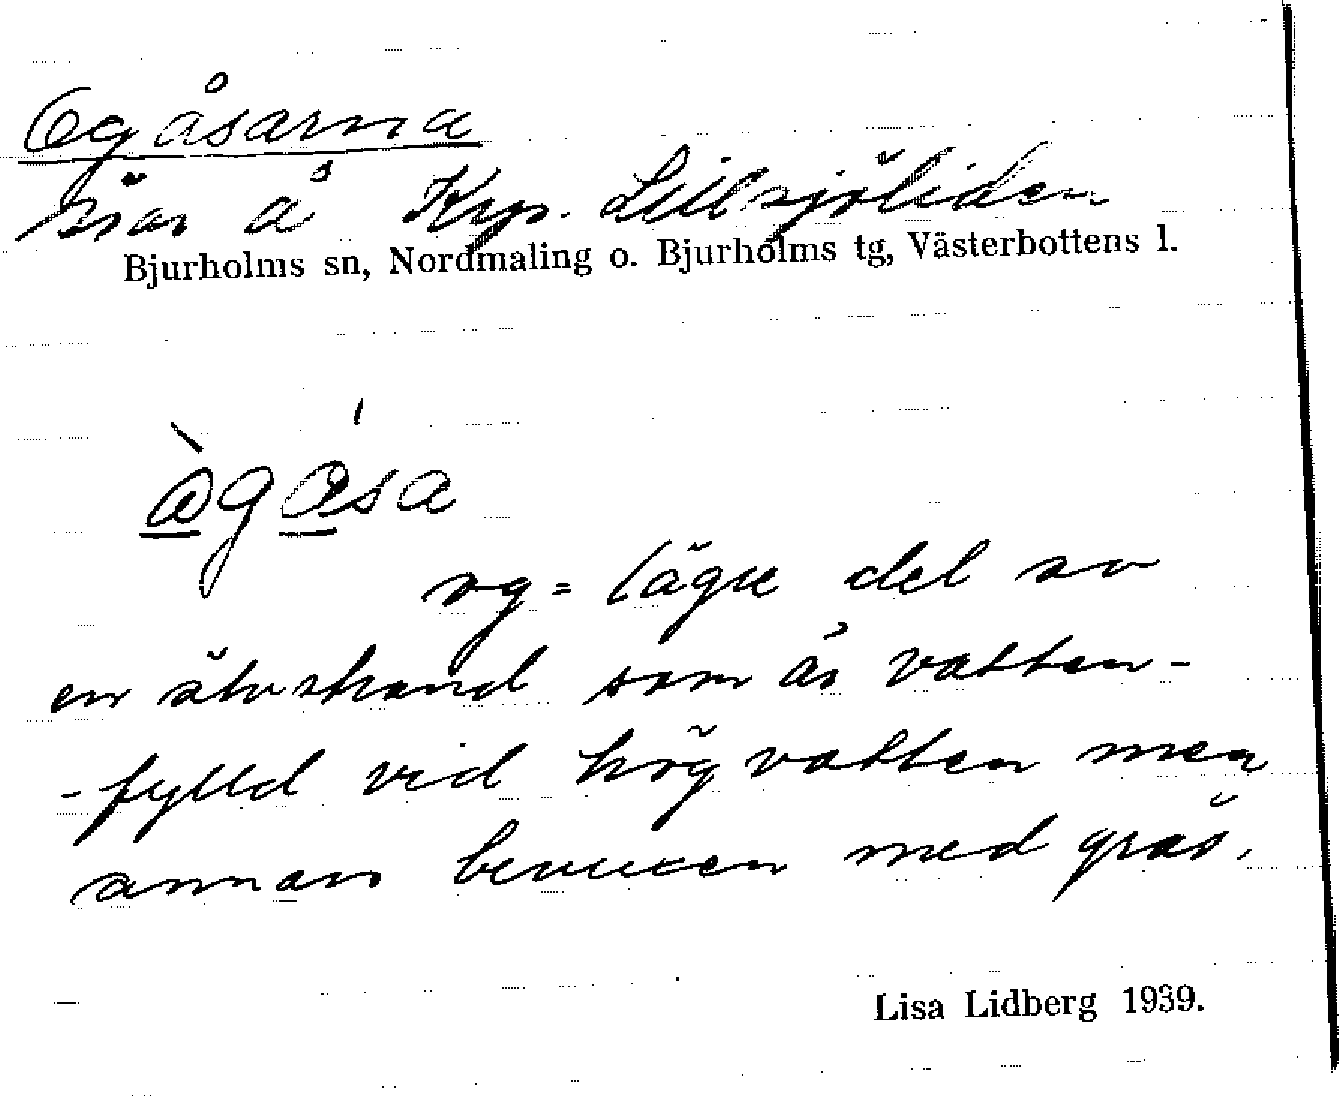 Ogåsarna
åsar å Krp. Lillsjöliden
Bjurholms sn, Nordmaling o. Bjurholms tg, Västerbottens l.
ògása
og = lägre del av
en älvstrand som är vatten-
-fylld vid högvatten men
annars bevuxen med gräs.
Lisa Lidberg 1939.